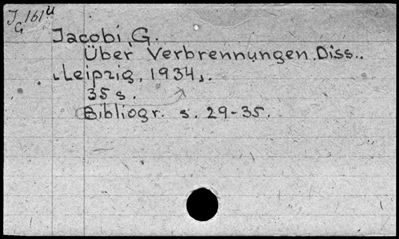 J 161u
G
Jacobi, G.
Über Verbrennungen. Diss.
Leipzig, 1934.
35 s.
Bibliogr. s. 29-35.